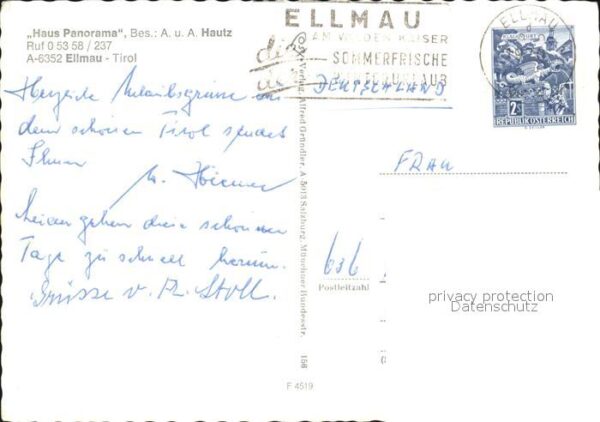 „Haus Panorama", Bes.: A. u. A. Hautz
Ruf 0 53 58 / 237
A-6352 Ellmau - Tirol
ELLMAU
AM WILDEN KAISER
SOMMERFRISCHE
ELLMAU
2S
REPUBLIK ÖSTERREICH
DEUTSCHLAND
Herzliche Urlaubsgrüsse aus
dem schönen Tirol sendet
Ihnen
Leider gehen diese schönen
Tage zu schnell herum.
Grüsse v. Fr. Stoll.
Verlag Alfred Gründler, A 5013 Salzburg, Münchner Bundesstr. 156
FRAU
636
Postleitzahl
privacy protection
Datenschutz
F 4519